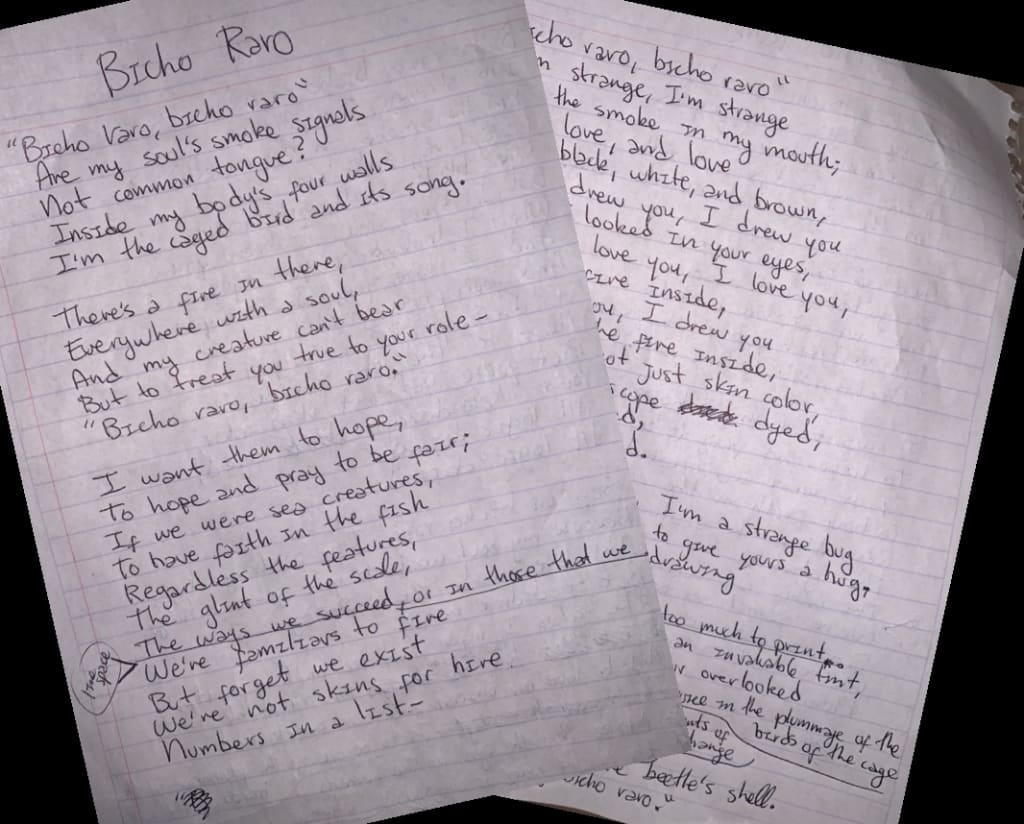 Bicho Raro
"Bicho raro, bicho raro"
Are my soul's smoke signals
Not common tongue?
Inside my body's four walls
I'm the caged bird and its song.
There's a fire in there,
Everywhere with a soul,
And my creature can't bear
But to treat you true to your role-
"Bicho raro, bicho raro."
I want them to hope,
To hope and pray to be fair;
If we were sea creatures,
To have faith in the fish
Regardless the features,
The glint of the scale,
The ways we succeed, or in those that we
line space
We're familiars to fire
But forget we exist
We're not skins for hire
Numbers in a list-
raro, bicho raro"
strange, I'm strange
the smoke in my mouth;
love, and love
black, white, and brown,
drew you, I drew you
looked in your eyes,
love you, I love you,
fire inside,
I drew you
fire inside,
just skin color,
dyed,
I'm a strange bug
to give yours a hug,
drawing
too much to print...
an invaluable tint,
overlooked
in the plummage of the
birds of the cage
of
beetle's shell.
raro."